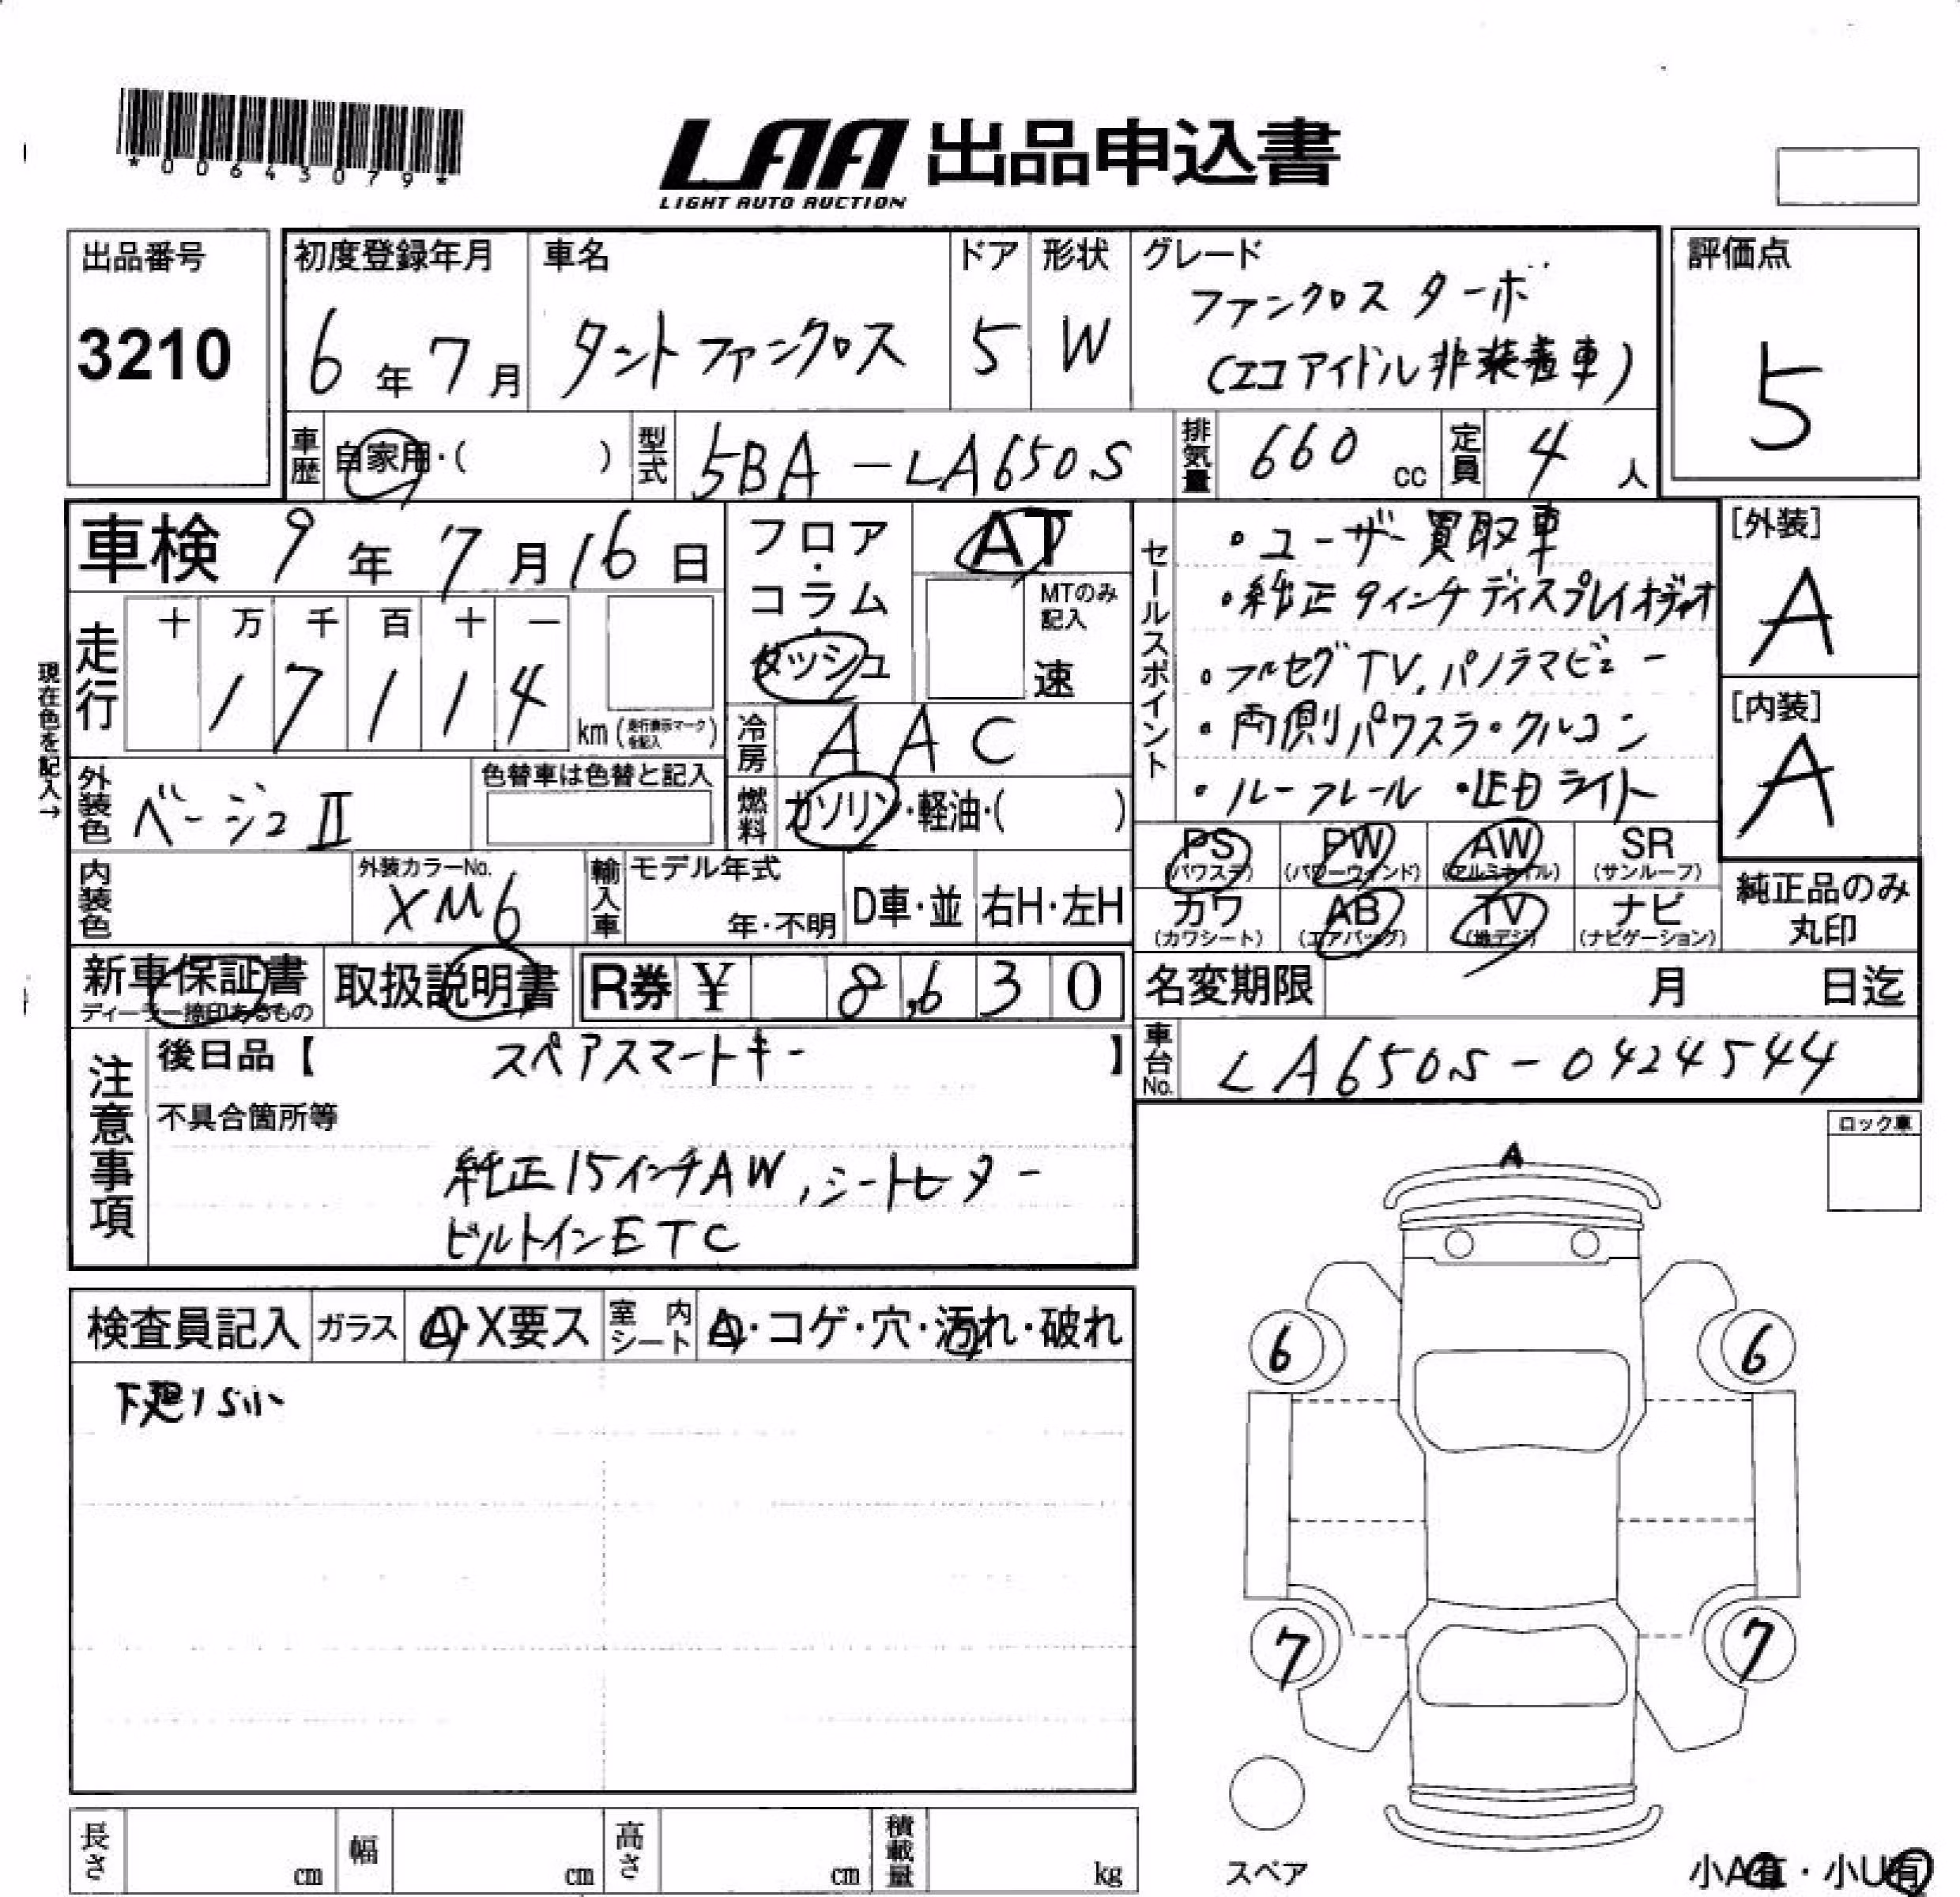 *00643079*
LAA 出品申込書
LIGHT AUTO AUCTION
出品番号
3210
初度登録年月
6年7月
車名
タントファンクロス
ドア
5
形状
W
グレード
ファンクロス ターボ
(エコアイドル非装着車)
評価点
5
車歴
自家用・( )
型式
5BA-LA650S
排気量
660 cc
定員
4人
車検 9年7月16日
走行
十 万 千 百 十 一
1 7 1 1 4
km(走行表示マークを記入)
現在色を記入→
外装色
ベージュII
色替車は色替と記入
内装色
外装カラーNo.
XM6
フロア・
コラム・
ダッシュ
AT
MTのみ記入
速
冷房
AAC
燃料
ガソリン・軽油・( )
輸入車
モデル年式
年・不明
D車・並
右H・左H
セールスポイント
・ユーザー買取車
・純正9インチディスプレイオーディオ
・フルセグTV、パノラマビュー
・両側パワスラ・クルコン
・ルーフレール ・LEDライト
[外装]
A
[内装]
A
PS (パワステ)
PW (パワーウィンド)
AW (アルミホイル)
SR (サンルーフ)
カワ (カワシート)
AB (エアバッグ)
TV (地デジ)
ナビ (ナビゲーション)
純正品のみ
丸印
新車保証書
ディーラー捺印あるもの
取扱説明書
R券 ¥ 8,630
名変期限 月 日迄
車台No.
LA650S-0424544
注意事項
後日品【 スペアスマートキー 】
不具合箇所等
純正15インチAW、シートヒーター
ビルトインETC
ロック車
検査員記入
ガラス
A・X要ス
室内シート
A・コゲ・穴・汚れ・破れ
A
6
6
7
7
スペア
長さ cm
幅 cm
高さ cm
積載量 kg
小A有・小U有